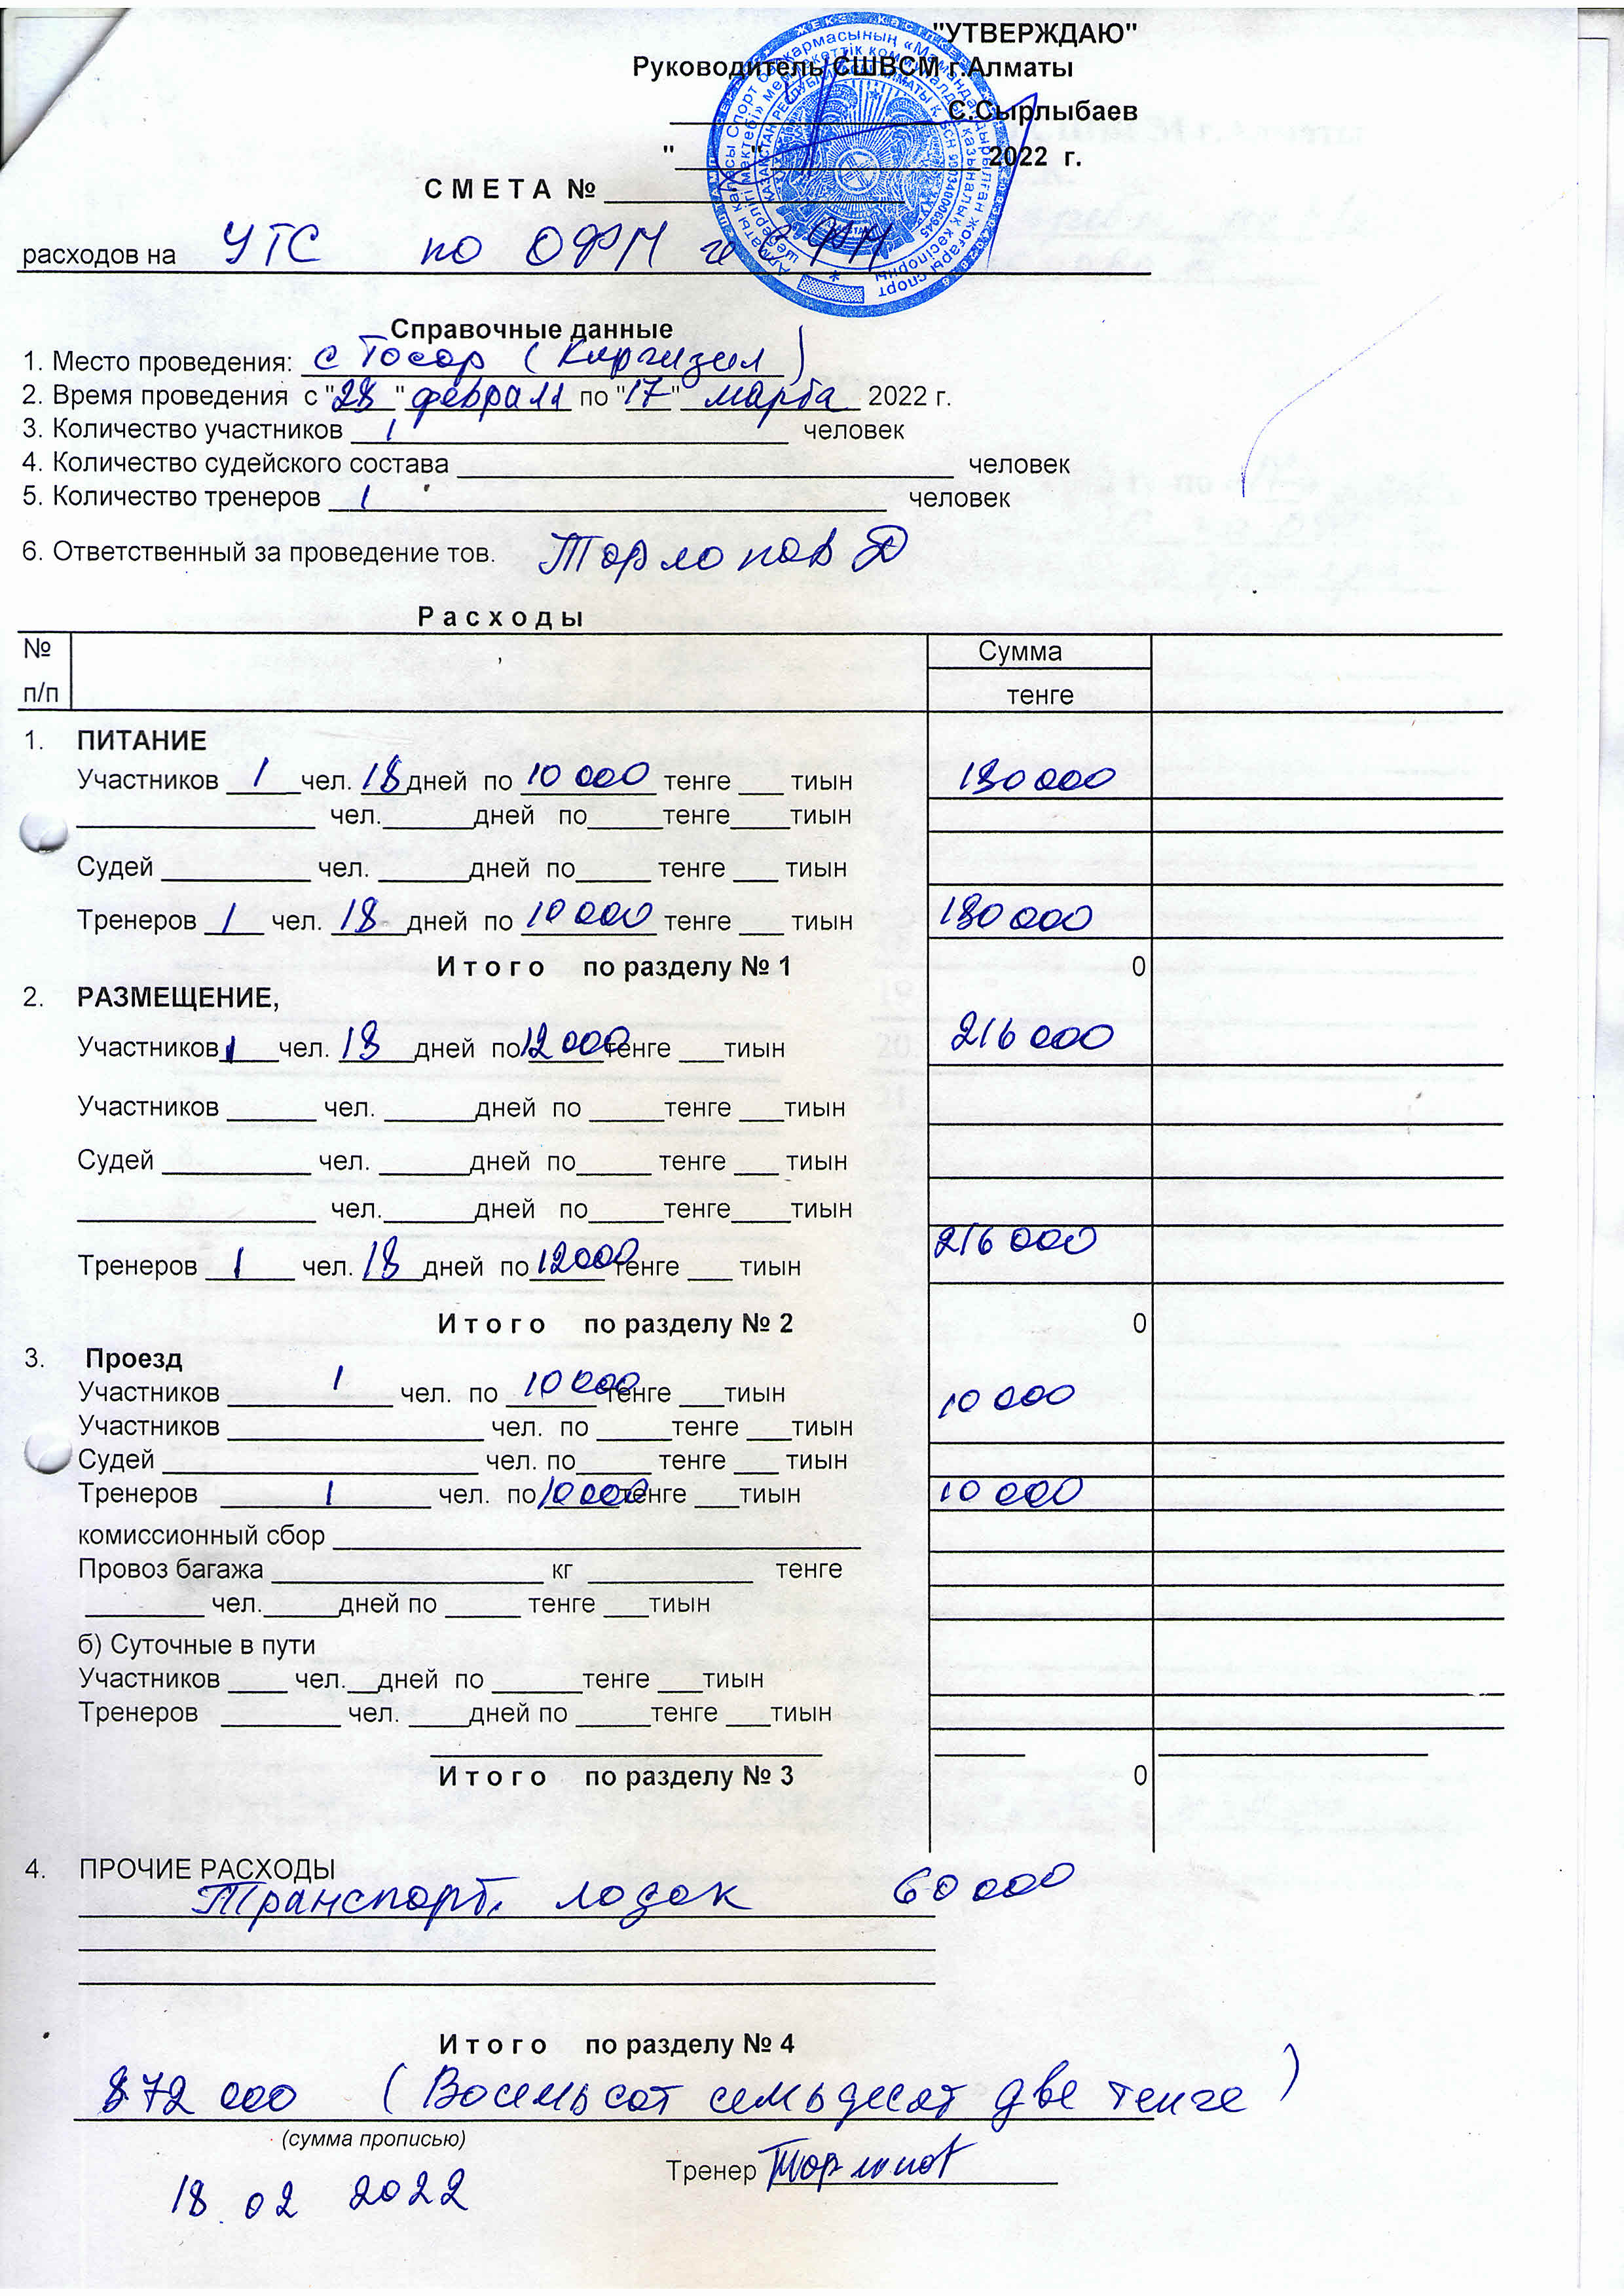 "УТВЕРЖДАЮ"
Руководитель СШВСМ г.Алматы
С.Сырлыбаев
"____" ______________ 2022 г.
С М Е Т А № ____________________
расходов на УТС по ОФП и СФП
Справочные данные
1. Место проведения: с Тосор (Киргизия)
2. Время проведения с "28" февраля по "17" марта 2022 г.
3. Количество участников 1 человек
4. Количество судейского состава ____________________ человек
5. Количество тренеров 1 человек
6. Ответственный за проведение тов. Торлопов Д
Р а с х о д ы
№ п/п Сумма
тенге
1. ПИТАНИЕ
Участников 1 чел. 18 дней по 10 000 тенге ___ тиын 180 000
________________ чел.______дней по_____тенге____тиын
Судей __________ чел. ______дней по_____ тенге ___ тиын
Тренеров 1 чел. 18 дней по 10 000 тенге ___ тиын 180 000
И т о г о по разделу № 1 0
2. РАЗМЕЩЕНИЕ,
Участников 1 чел. 18 дней по 12 000 тенге ___тиын 216 000
Участников ______ чел. ______дней по _____тенге ___тиын
Судей __________ чел. ______дней по_____ тенге ___ тиын
________________ чел.______дней по_____тенге____тиын
Тренеров 1 чел. 18 дней по 12000 тенге ___ тиын 216 000
И т о г о по разделу № 2 0
3. Проезд
Участников 1 чел. по 10 000 тенге ___тиын 10 000
Участников _________________ чел. по _____тенге ___тиын
Судей _____________________ чел. по_____ тенге ___ тиын
Тренеров 1 чел. по 10 000 тенге ___тиын 10 000
комиссионный сбор ___________________________________
Провоз багажа __________________ кг ___________ тенге
________ чел._____дней по _____ тенге ___тиын
б) Суточные в пути
Участников ____ чел.__дней по ______тенге ___тиын
Тренеров ________ чел. ____дней по _____тенге ___тиын
И т о г о по разделу № 3 0
4. ПРОЧИЕ РАСХОДЫ
Транспорт. лодок 60 000
И т о г о по разделу № 4
872 000 (Восемьсот семьдесят две тенге)
(сумма прописью)
Тренер Торлопов
18.02 2022